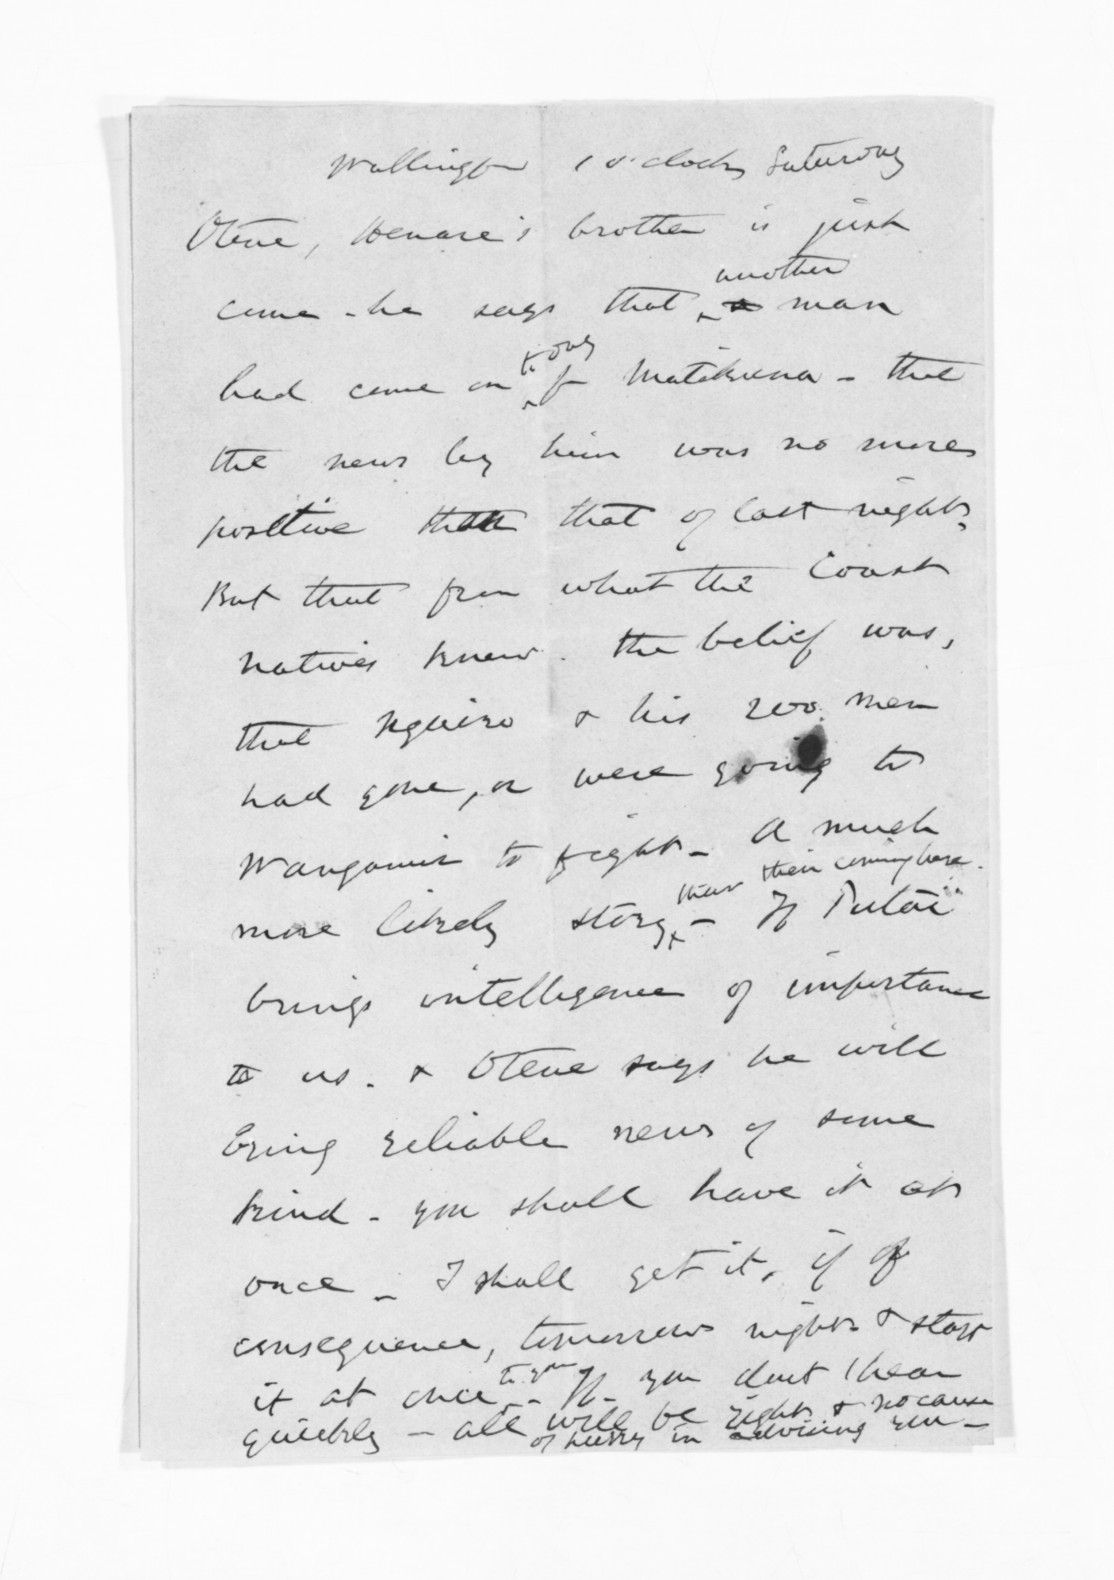 Wellington 1 o'clock Saturday
Otene, Henare's brother is just
another
come - he says that a man
to day
had come on fr Matikuna - that
the news by him was no more
positive than that of last night.
But that from what the Coast
natives knew. the belief was,
that Ngairo & his 200 men
had gone, or were going to
Wanganui to fight - A much
than their coming here.
more likely story - If Tutai
brings intelligence of importance
to us. & Otene says he will
bring reliable news of some
kind - you shall have it at
once - I shall get it, if of
consequence, tomorrow night & stop
to you
it at once - If you dont hear
quickly - all will be right & no cause
of hurry in advising you -